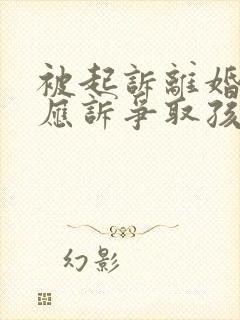 被起訴離婚
應訴爭取孩
幻影